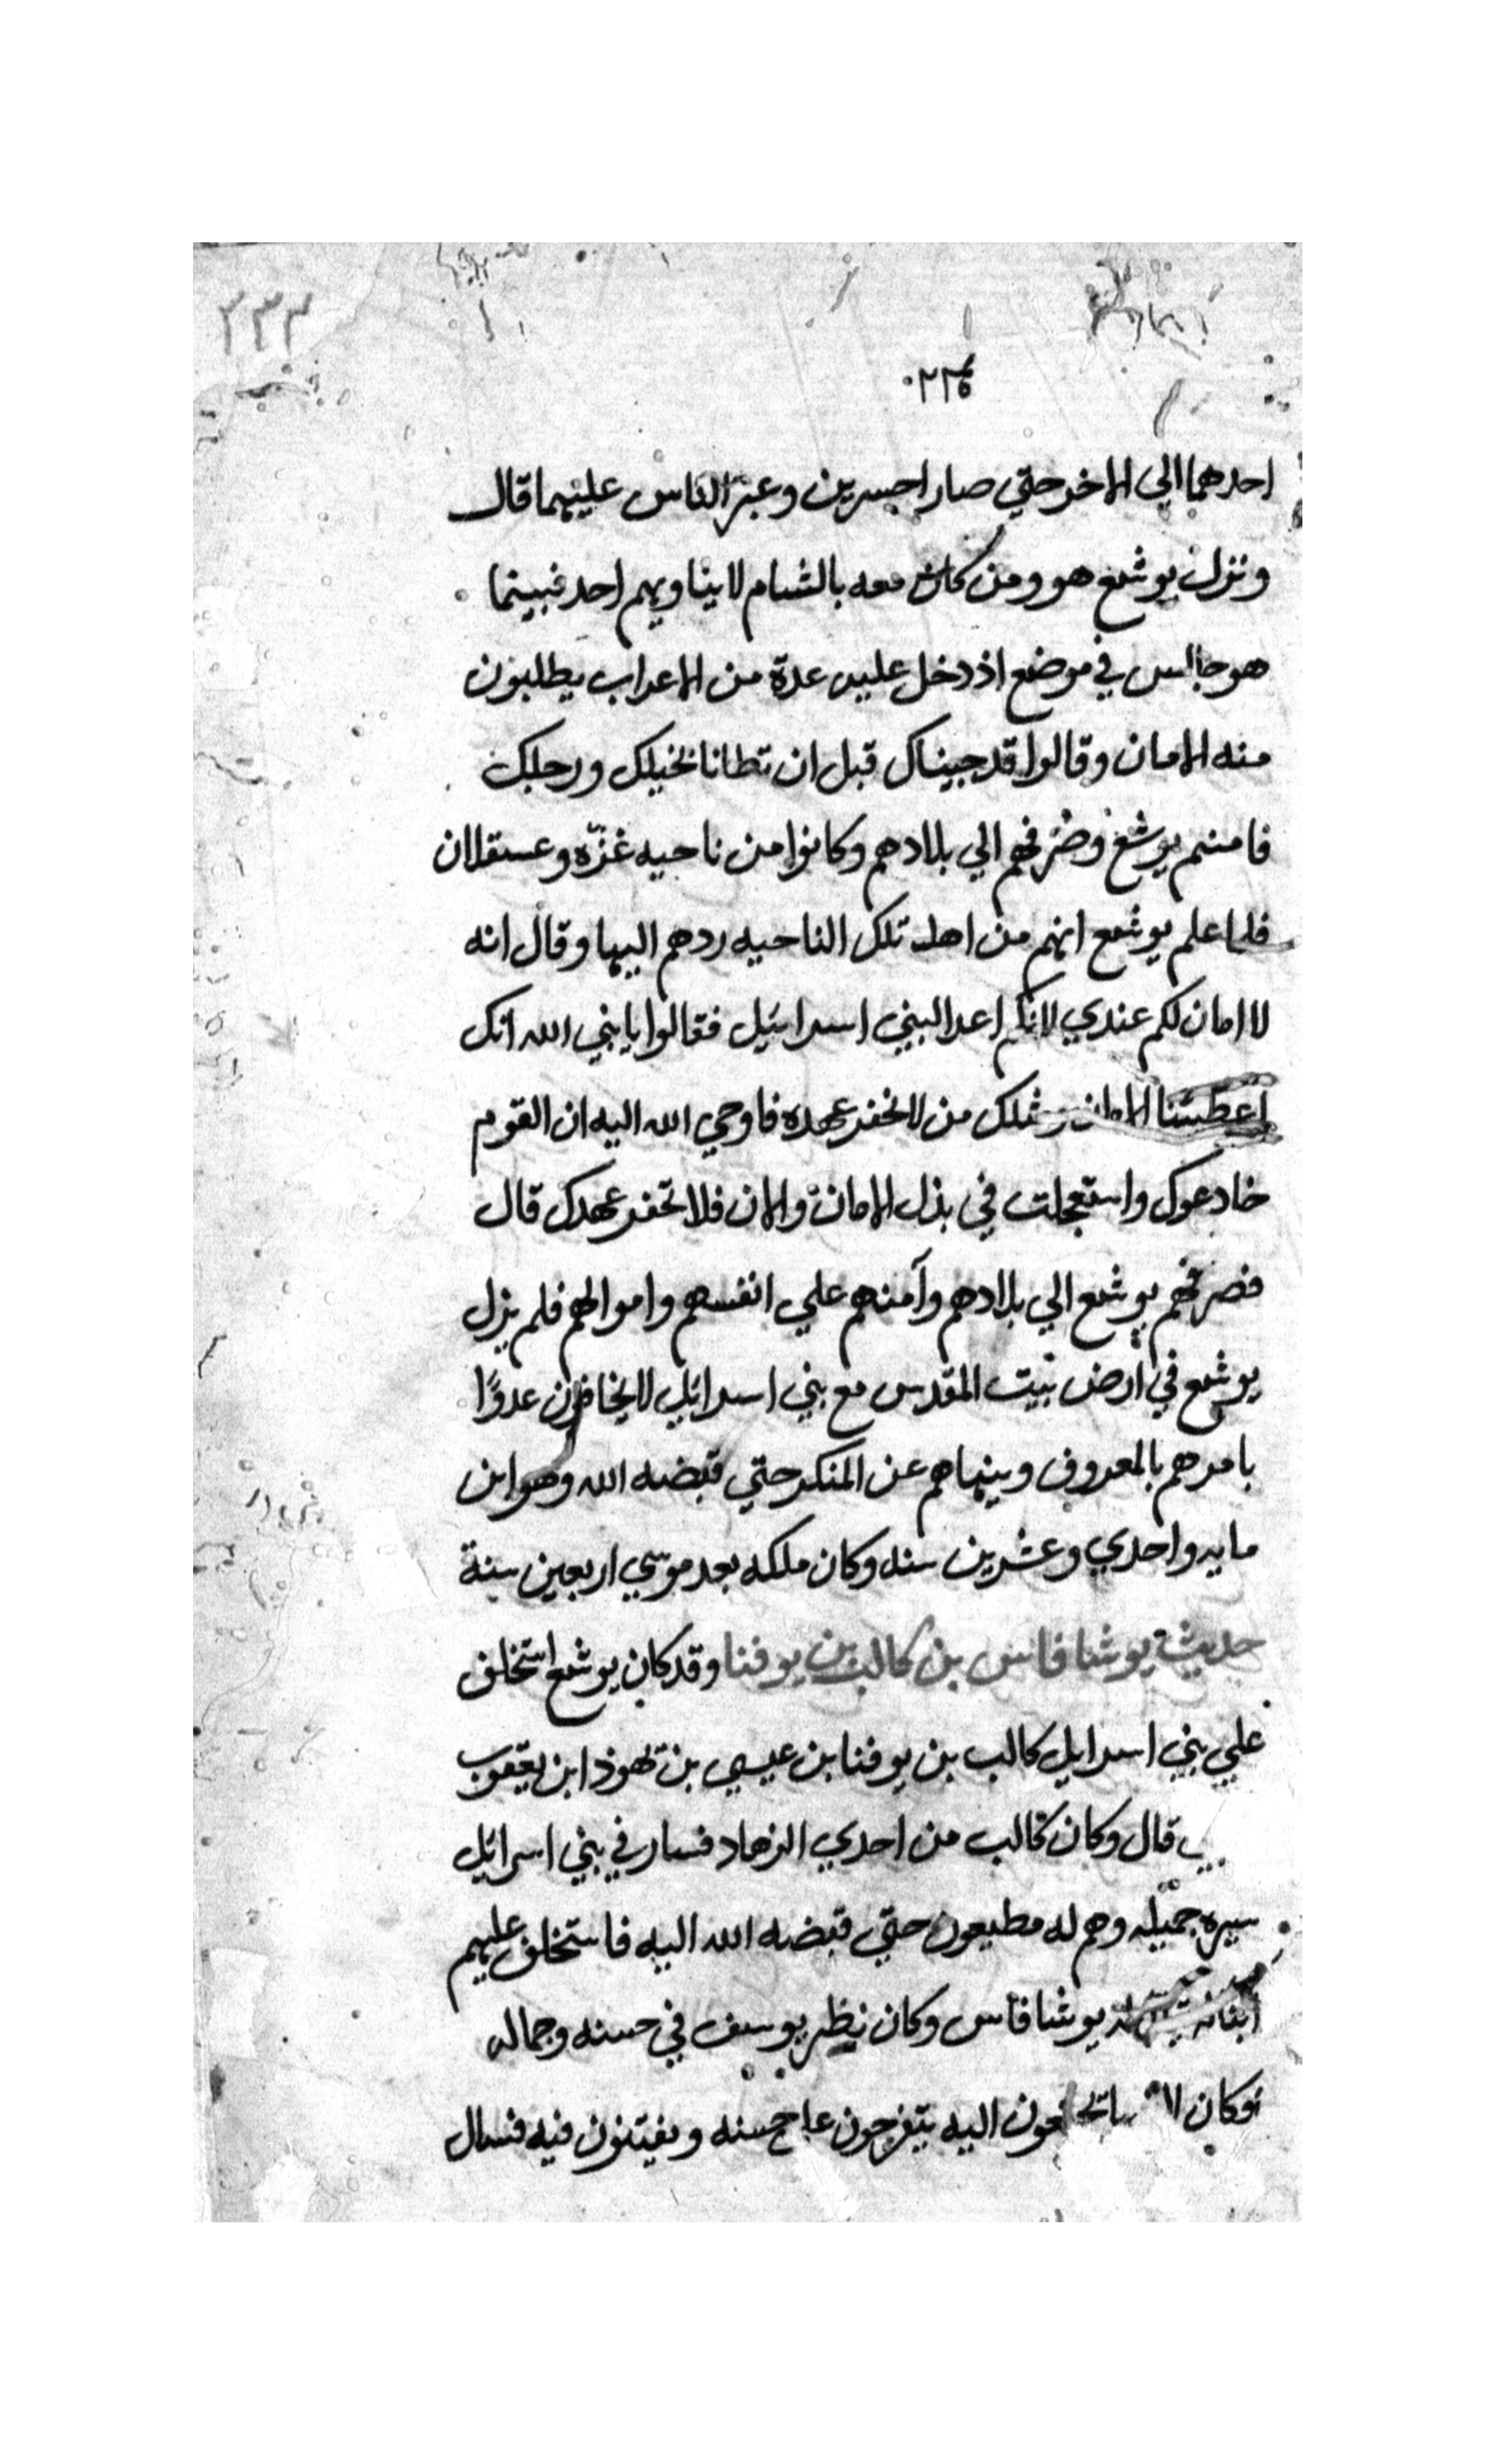 ٢٣٣
احدهما الي الاخر حتي صارا جسرين وعبر الناس عليهما قال
ونزل يوشع هو ومن كان معه بالشام لا يناويهم احد فبينما
هو جالس في موضع اذ دخل عليه عدة من الاعراب يطلبون
منه الامان وقالوا قد جيناك قبل ان تطانا بخيلك ورجلك
فامنهم يوشع وصرفهم الي بلادهم وكانوا من ناحيه غزّه وعسقلان
فلما علم يوشع انهم من اهل تلك الناحيه ردهم اليها وقال انه
لا امان لكم عندي لانكم اعدا لبني اسرائيل فقالوا يا بني الله انك
اعطيتنا الامان ومثلك من لا يخفر عهده فاوحي الله اليه ان القوم
خادعوك واستعجلت في بذل الامان والان فلا تخفر عهدك قال
فصرفهم يوشع الي بلادهم وآمنهم علي انفسهم واموالهم فلم يزل
يوشع في ارض بيت المقدس مع بني اسرائيل لا يخافون عدوًا
يامرهم بالمعروف وينهاهم عن المنكر حتي قبضه الله وهو ابن
مايه واحدي وعشرين سنه وكان ملكه بعد موسي اربعين سنة
حديث يوشافاس بن كالب بن يوفنا وقد كان يوشع استخلف
علي بني اسرايل كالب بن يوفنا بن عيسي بن يهوذا بن يعقوب
قال وكان كالب من احدي الزهاد فسار في بني اسرائيل
سيره جميله وهم له مطيعون حتي قبضه الله اليه فاستخلف عليهم
يوشافاس وكان نظير يوسف في حسنه وجماله
وكان اليه يتفرجون علي حسنه ويفتنون فيه فسال